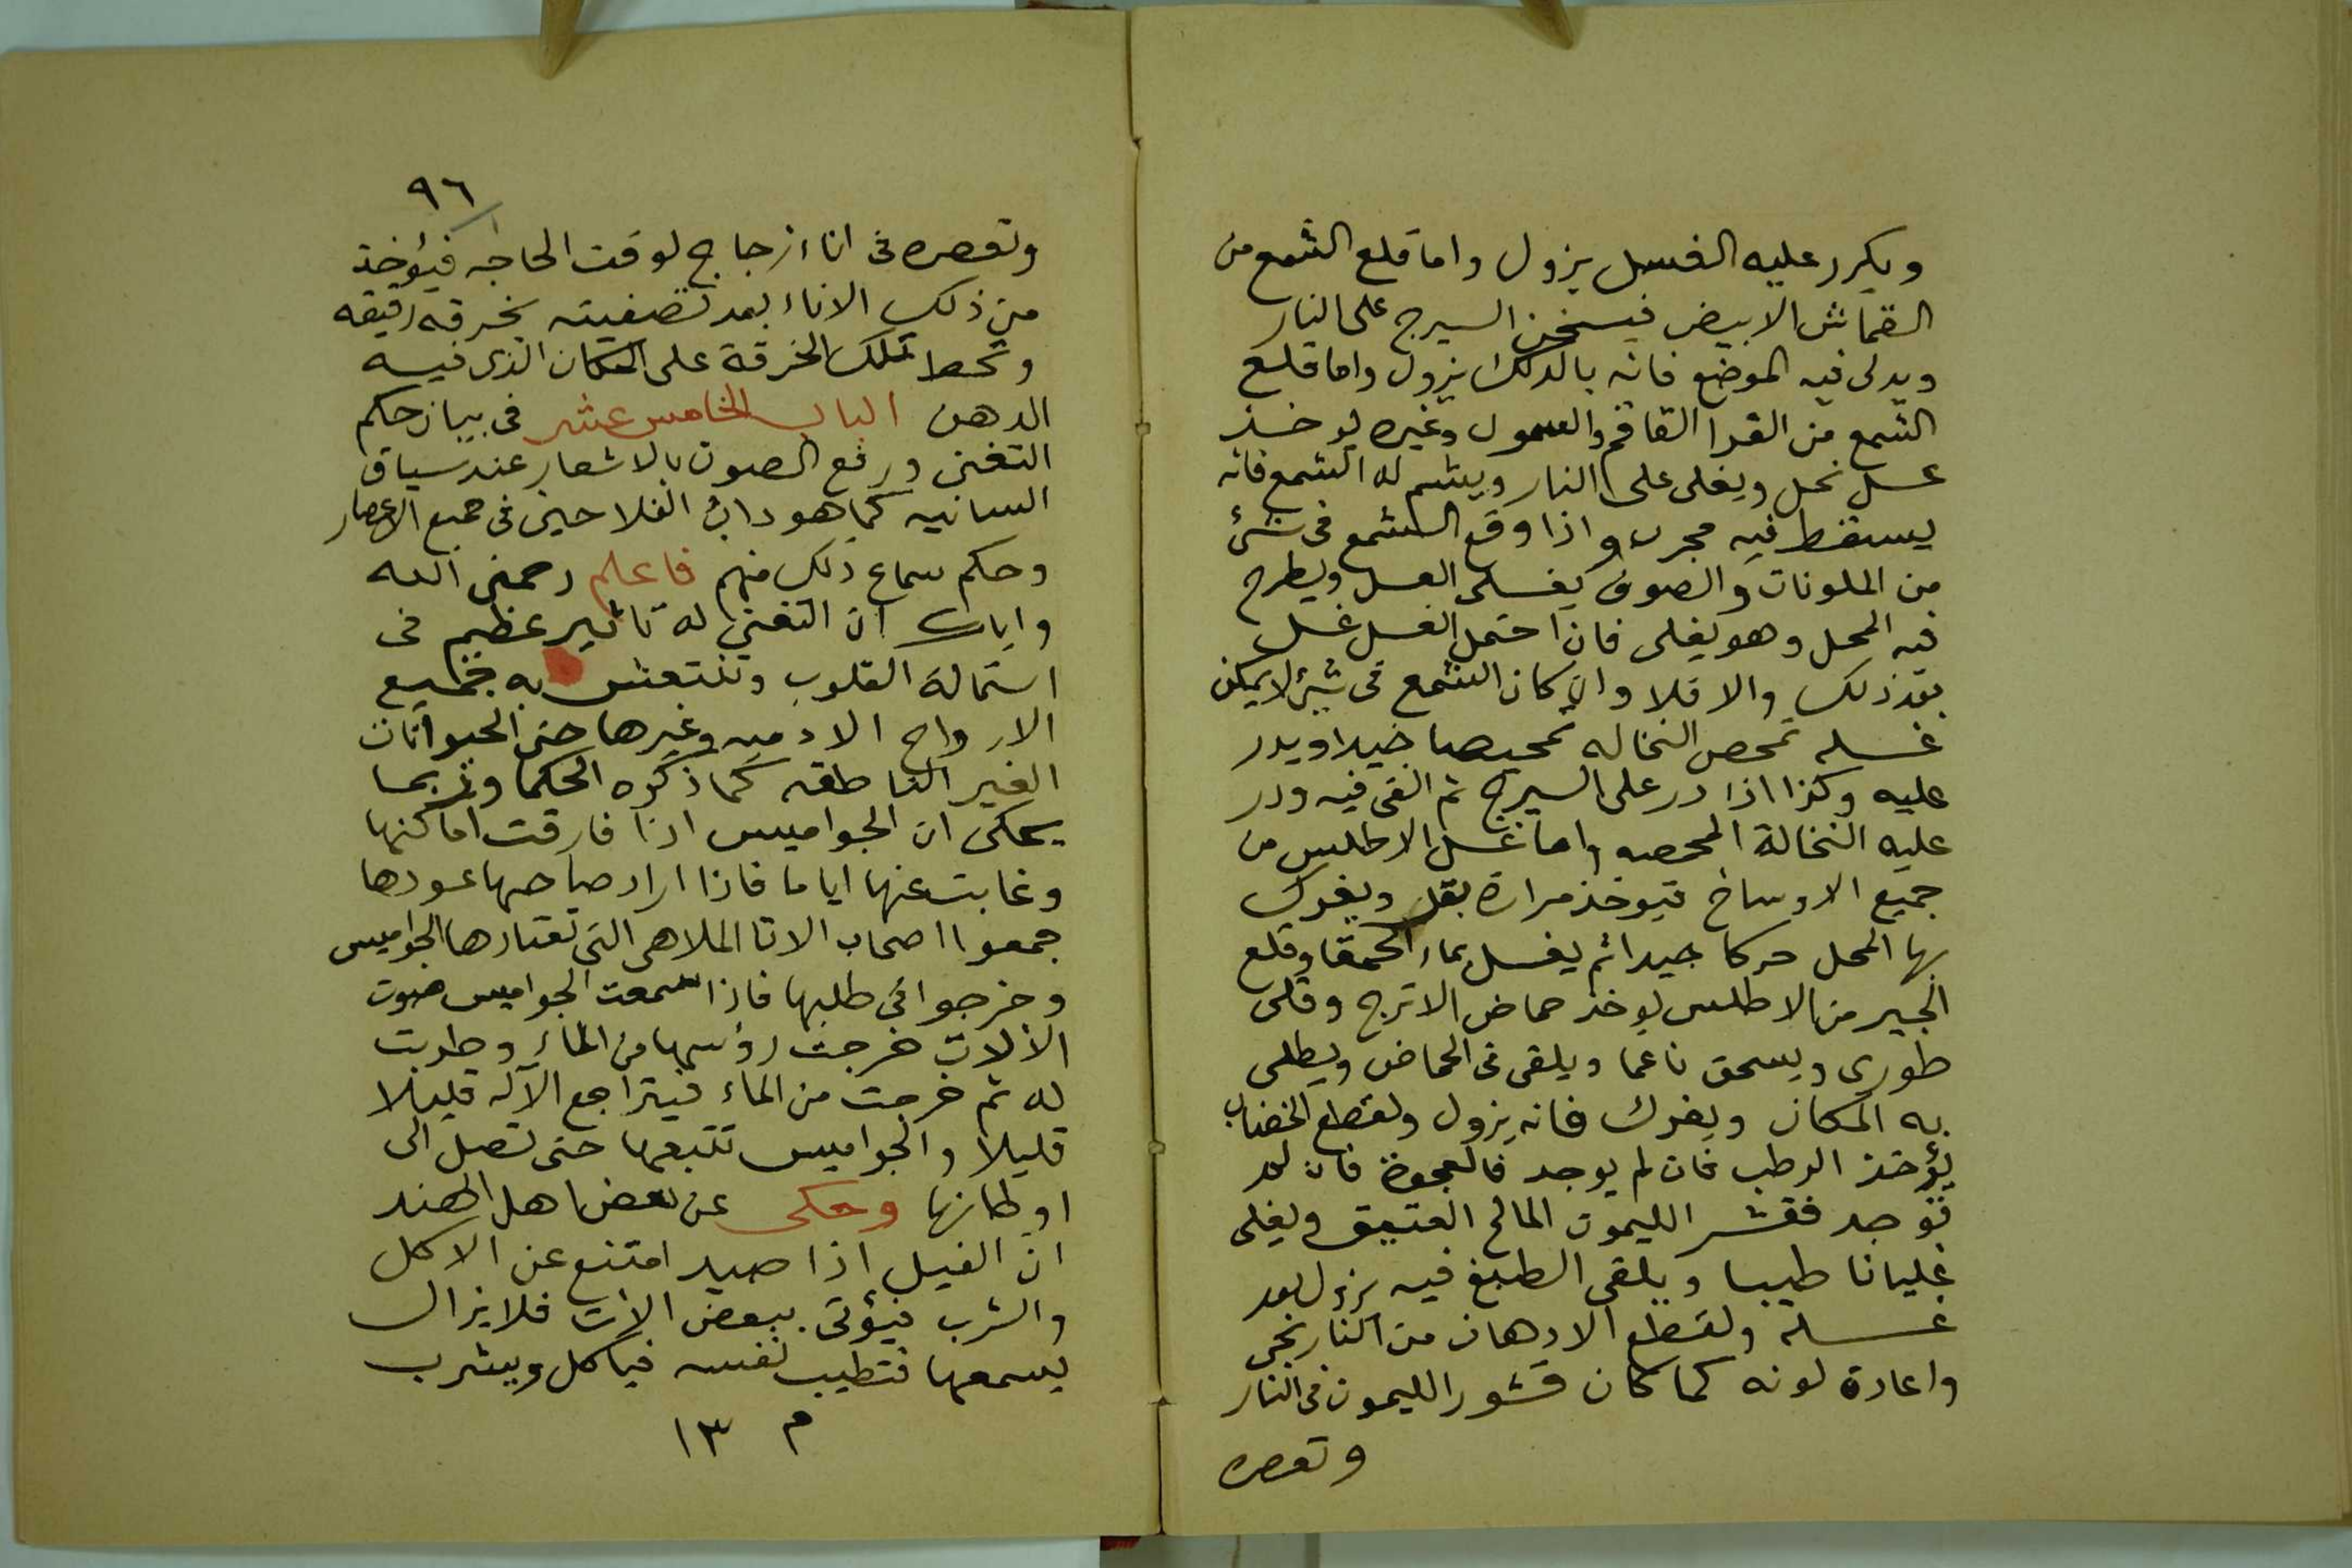 ويكرر عليه الغسل يزول واما قلع الشمع من
القماش الابيض فيسخن السيرج على النار
ويدلى فيه الموضع فانه بالدلك يزول واما قلع
الشمع من الفرا القاقم والسمول وغيره يوخذ
عسل نحل ويغلى على النار ويشم له الشمع فانه
يسقط فيه مجرب واذا وقع الشمع فى شئ
من الملونات والصوف يغسلى العسل ويطرح
فيه المحل وهو يغلى فان احتمل الغسل غسل
بعد ذلك والا فلا وان كان الشمع فى شئ لا يمكن
غسله تمحص النخاله تمحيصا جيدا ويدر
عليه وكذا اذا در على السيرج ثم القى فيه ودر
عليه النخالة الممحصه واما غسل الاطلس من
جميع الاوساخ فيوخذ مرارة بقر ويفرك
بها المحل حركا جيدا ثم يغسل بماء الحمقا وقلع
الحبر من الاطلس يوخذ حماض الاترج وقلى
طورى ويسحق ناعما ويلقى فى الحماض ويطلى
به المكان ويفرك فانه يزول ولقطع الخضاب
يؤخذ الرطب فان لم يوجد فالعجوة فان لم
توجد فقشر الليمون المالح العتيق ويغلى
غليانا طيبا ويلقى الطبغ فيه يزول بعد
غسله ولقطع الادهان من النارنجى
واعادة لونه كما كان قشور الليمون فى النار
وتعصره
٩٦
وتعصره فى اناء زجاج لوقت الحاجه فيؤخذ
من ذلك الاناء بعد تصفيته بخرقه رقيقه
وتحط تلك الخرقة على المكان الذى فيه
الدهن الباب الخامس عشر فى بيان حكم
التغنى ورفع الصوت بالاشعار عند سياق
السانيه كما هو داب الفلاحين فى جميع الاعصار
وحكم سماع ذلك منهم فاعلم رحمنى الله
واياك ان التغنى له تاثير عظيم فى
استمالة القلوب وتنتعش به جميع
الارواح الادميه وغيرها حتى الحيوانات
الغير الناطقه كما ذكره الحكما وربما
يحكى ان الجواميس اذا فارقت اماكنها
وغابت عنها اياما فاذا اراد صاحبها عودها
جمعوا اصحاب الاتا الملاهى التى تعتادها الجواميس
وخرجوا فى طلبها فاذا سمعت الجواميس صوت
الالات خرجت رؤسها من الماء وطربت
له ثم خرجت من الماء فيتراجع الآله قليلا
قليلا والجواميس تتبعها حتى تصل الى
اوطانها وحكى عن بعض اهل الهند
ان الفيل اذا صيد امتنع عن الاكل
والشرب فيؤتى ببعض الات فلا يزال
يسمعها فتطيب نفسه فياكل ويشرب
م ١٣